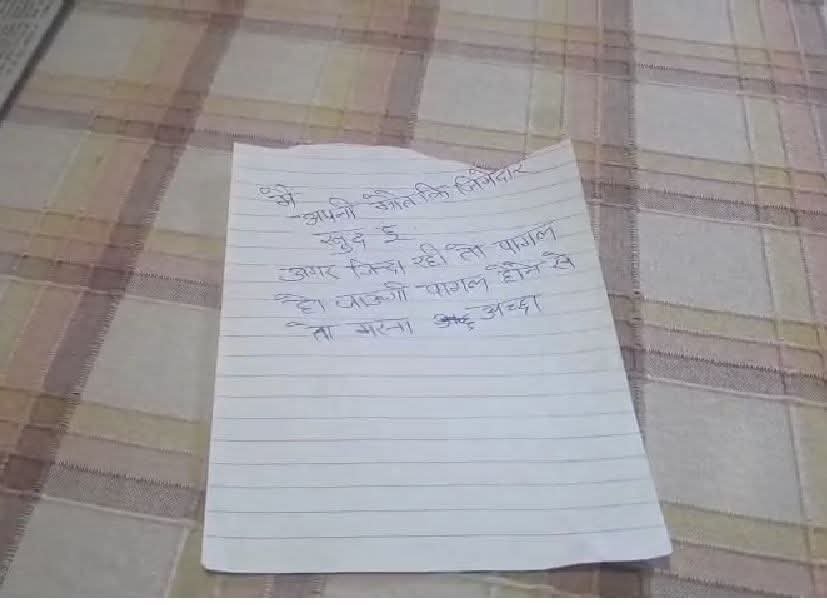 मै
अपनी मौत कि जिमेदार
खुद हूँ
अगर जिन्दा रही तो पागल
हो जाऊगी पागल होने से
तो मरना अच्छा